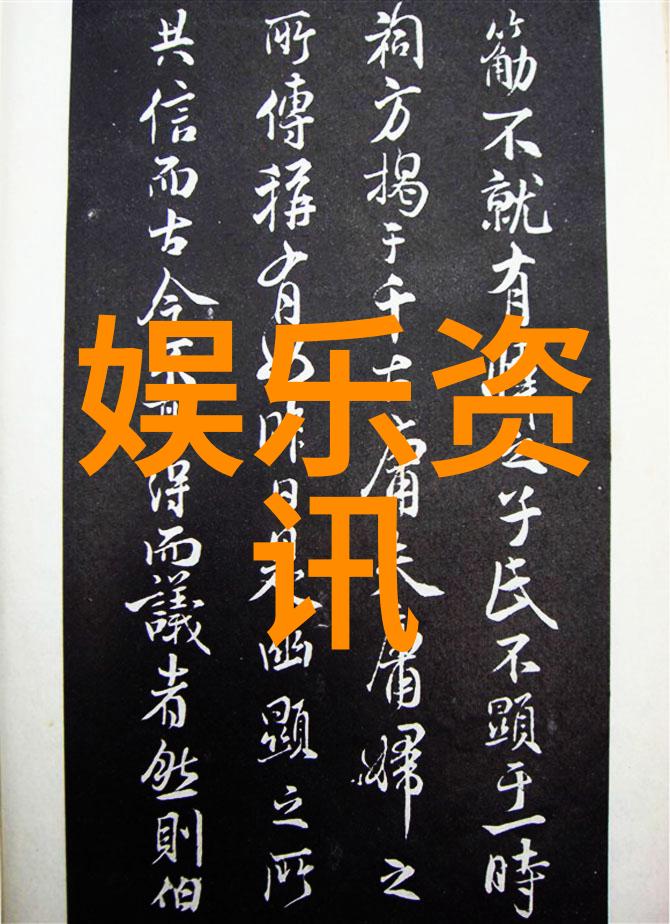 不就有民不顯于一時
祠方揭于千古庸夫庸婦之
所傳稱有如昨日是幽顯之所
共信而古今不可得而議者然則伯
娱乐资
讯